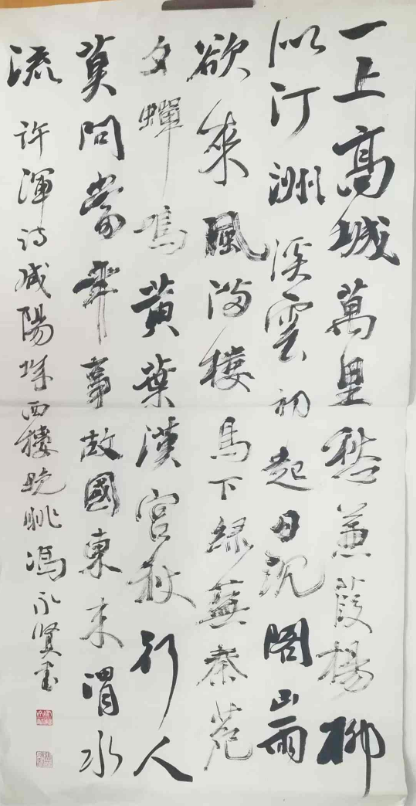 一上高城萬里愁蒹葭楊柳
似汀洲溪雲初起日沉閣山雨
欲來風滿樓鳥下綠蕪秦苑
夕蟬鳴黃葉漢宮秋行人
莫問當年事故國東來渭水
流 許渾詩咸陽城西樓晚眺 馮永賢書